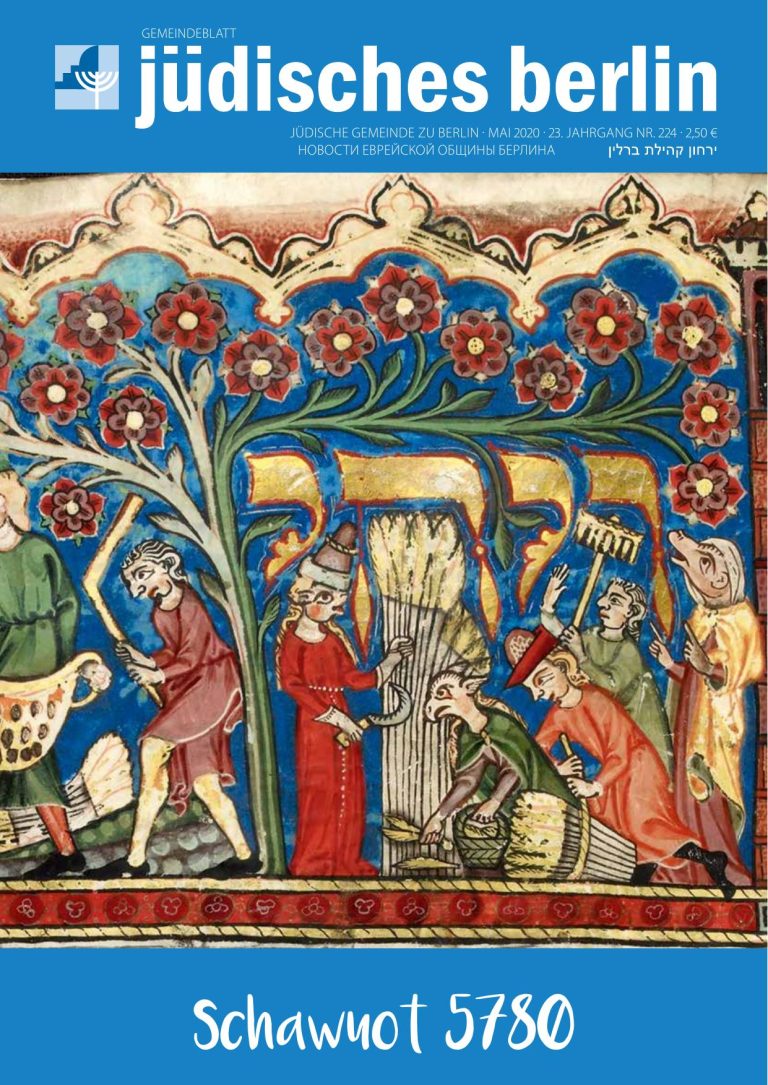 GEMEINDEBLATT
jüdisches berlin
JÜDISCHE GEMEINDE ZU BERLIN · MAI 2020 · 23. JAHRGANG NR. 224 · 2,50 €
НОВОСТИ ЕВРЕЙСКОЙ ОБЩИНЫ БЕРЛИНА ירחון קהילת ברלין
ויהי
Schawuot 5780